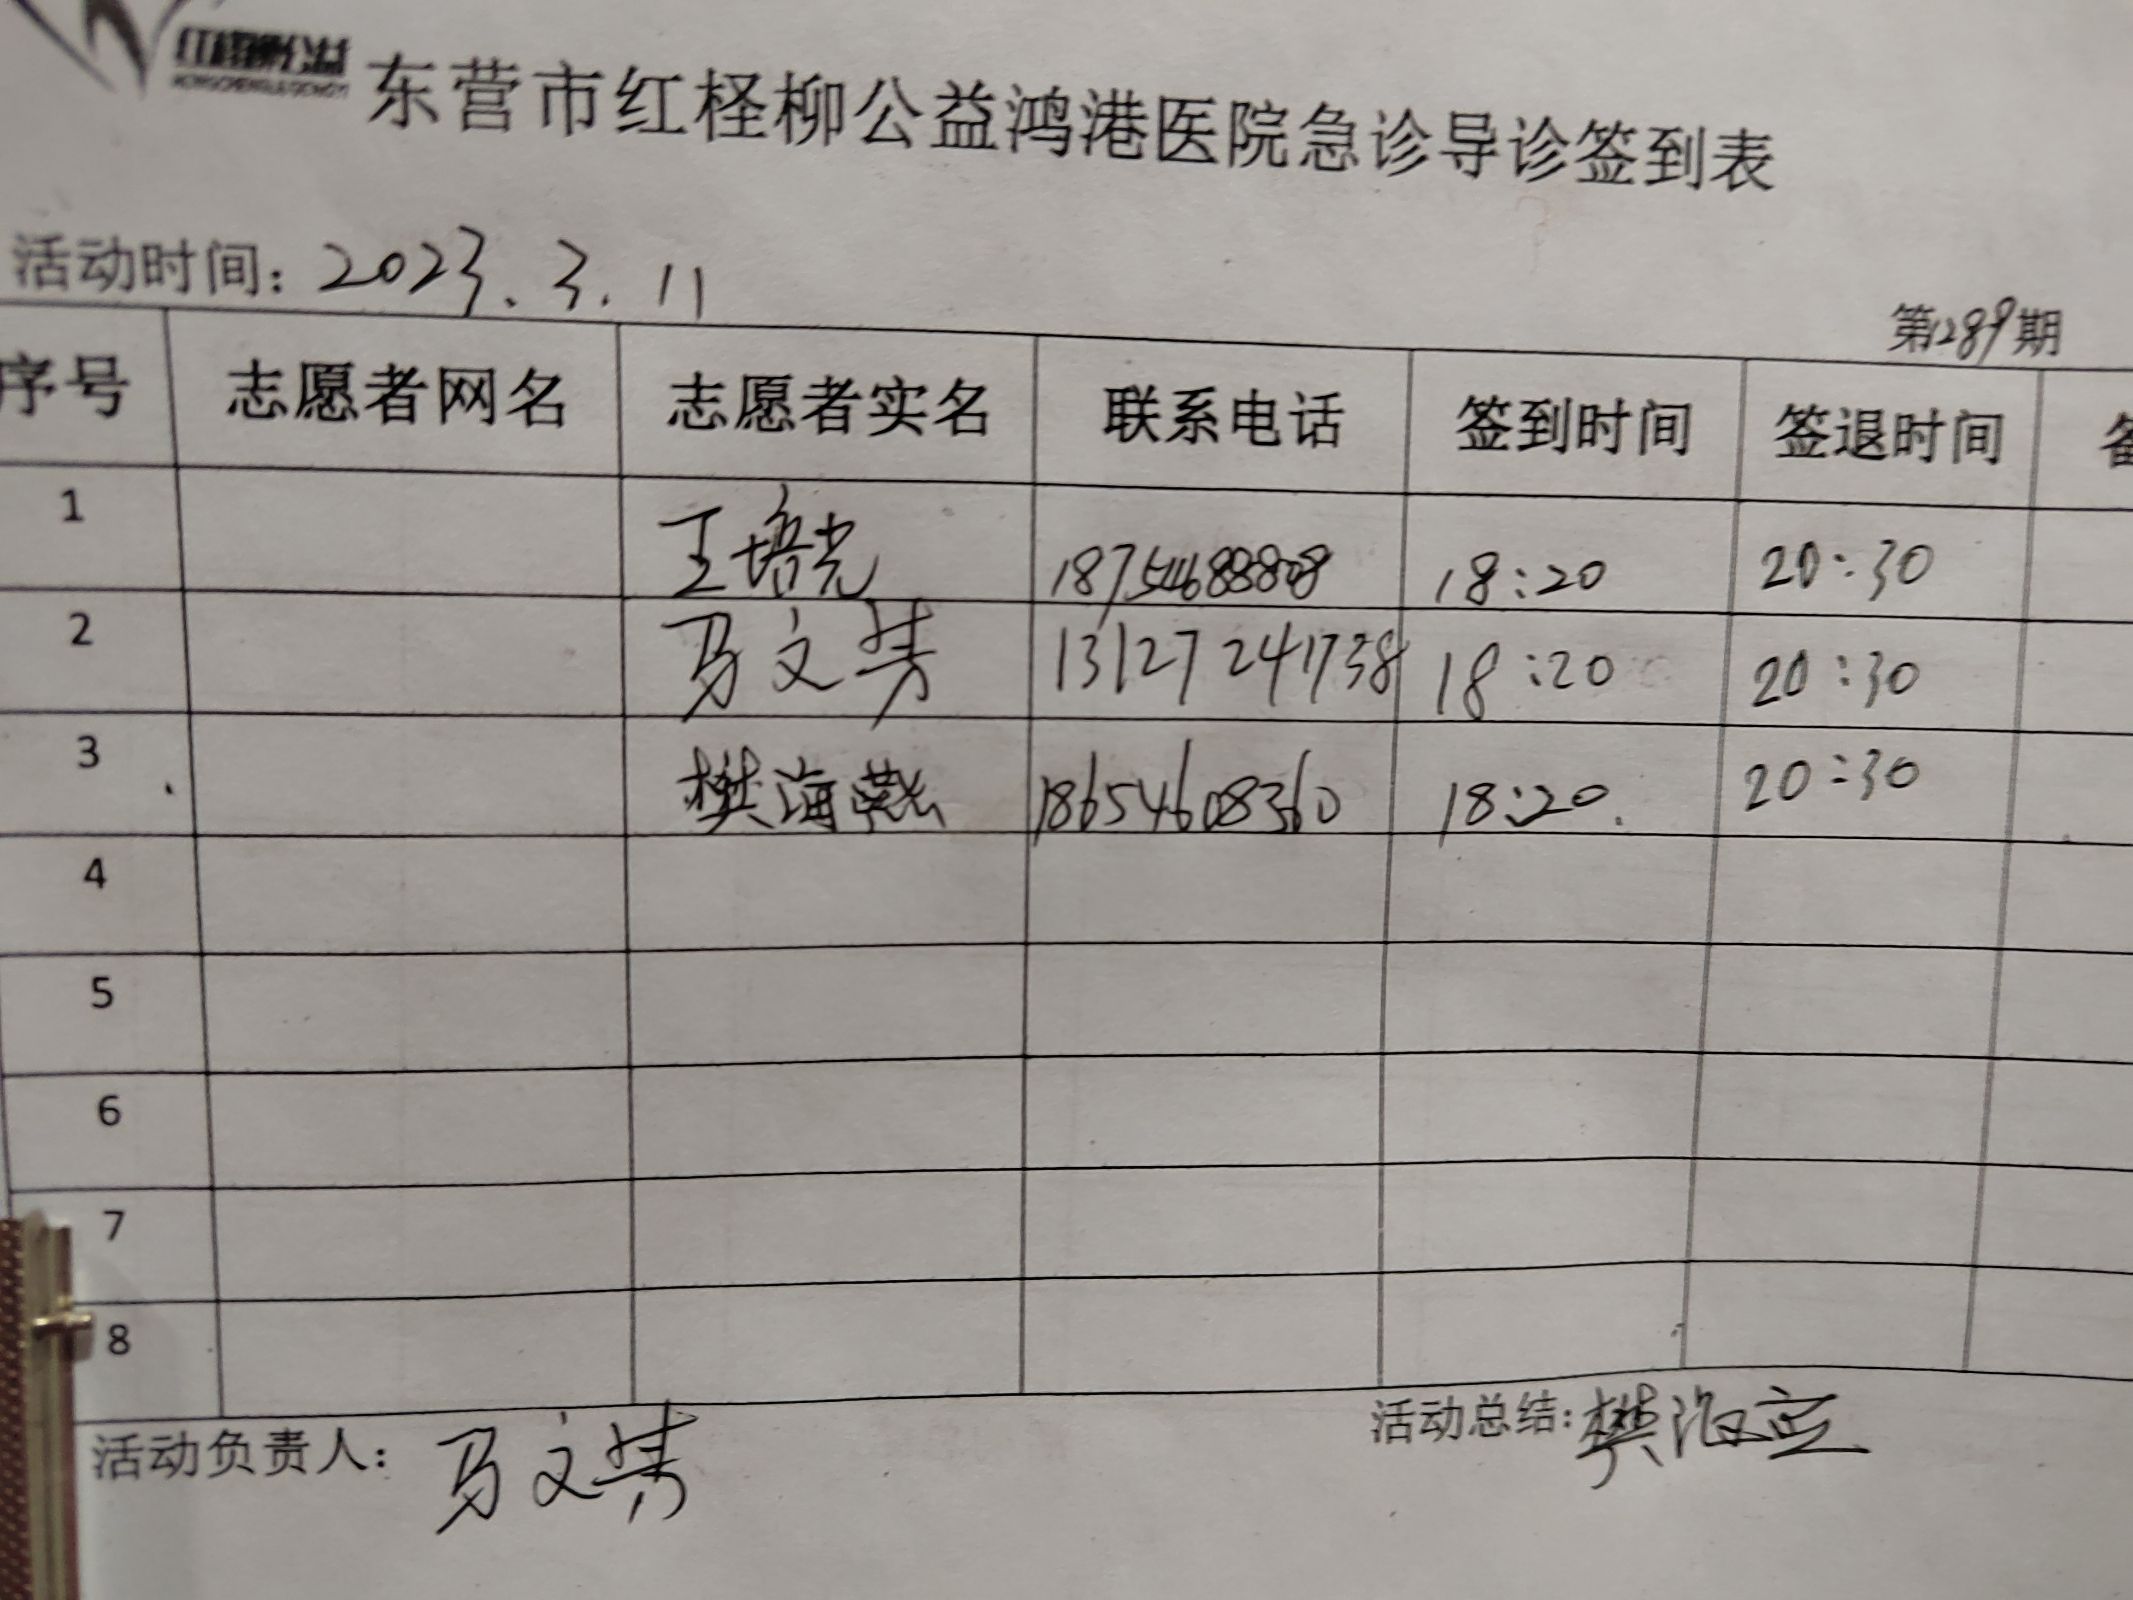 东营市红柽柳公益鸿港医院急诊导诊签到表
活动时间：2023.3.11
第1289期
序号 志愿者网名 志愿者实名 联系电话 签到时间 签退时间
1 王培光 18754688808 18:20 20:30
2 马文芳 13127241738 18:20 20:30
3 樊海燕 18654608360 18:20. 20:30
4
5
6
7
8
活动负责人：马文芳
活动总结：樊海